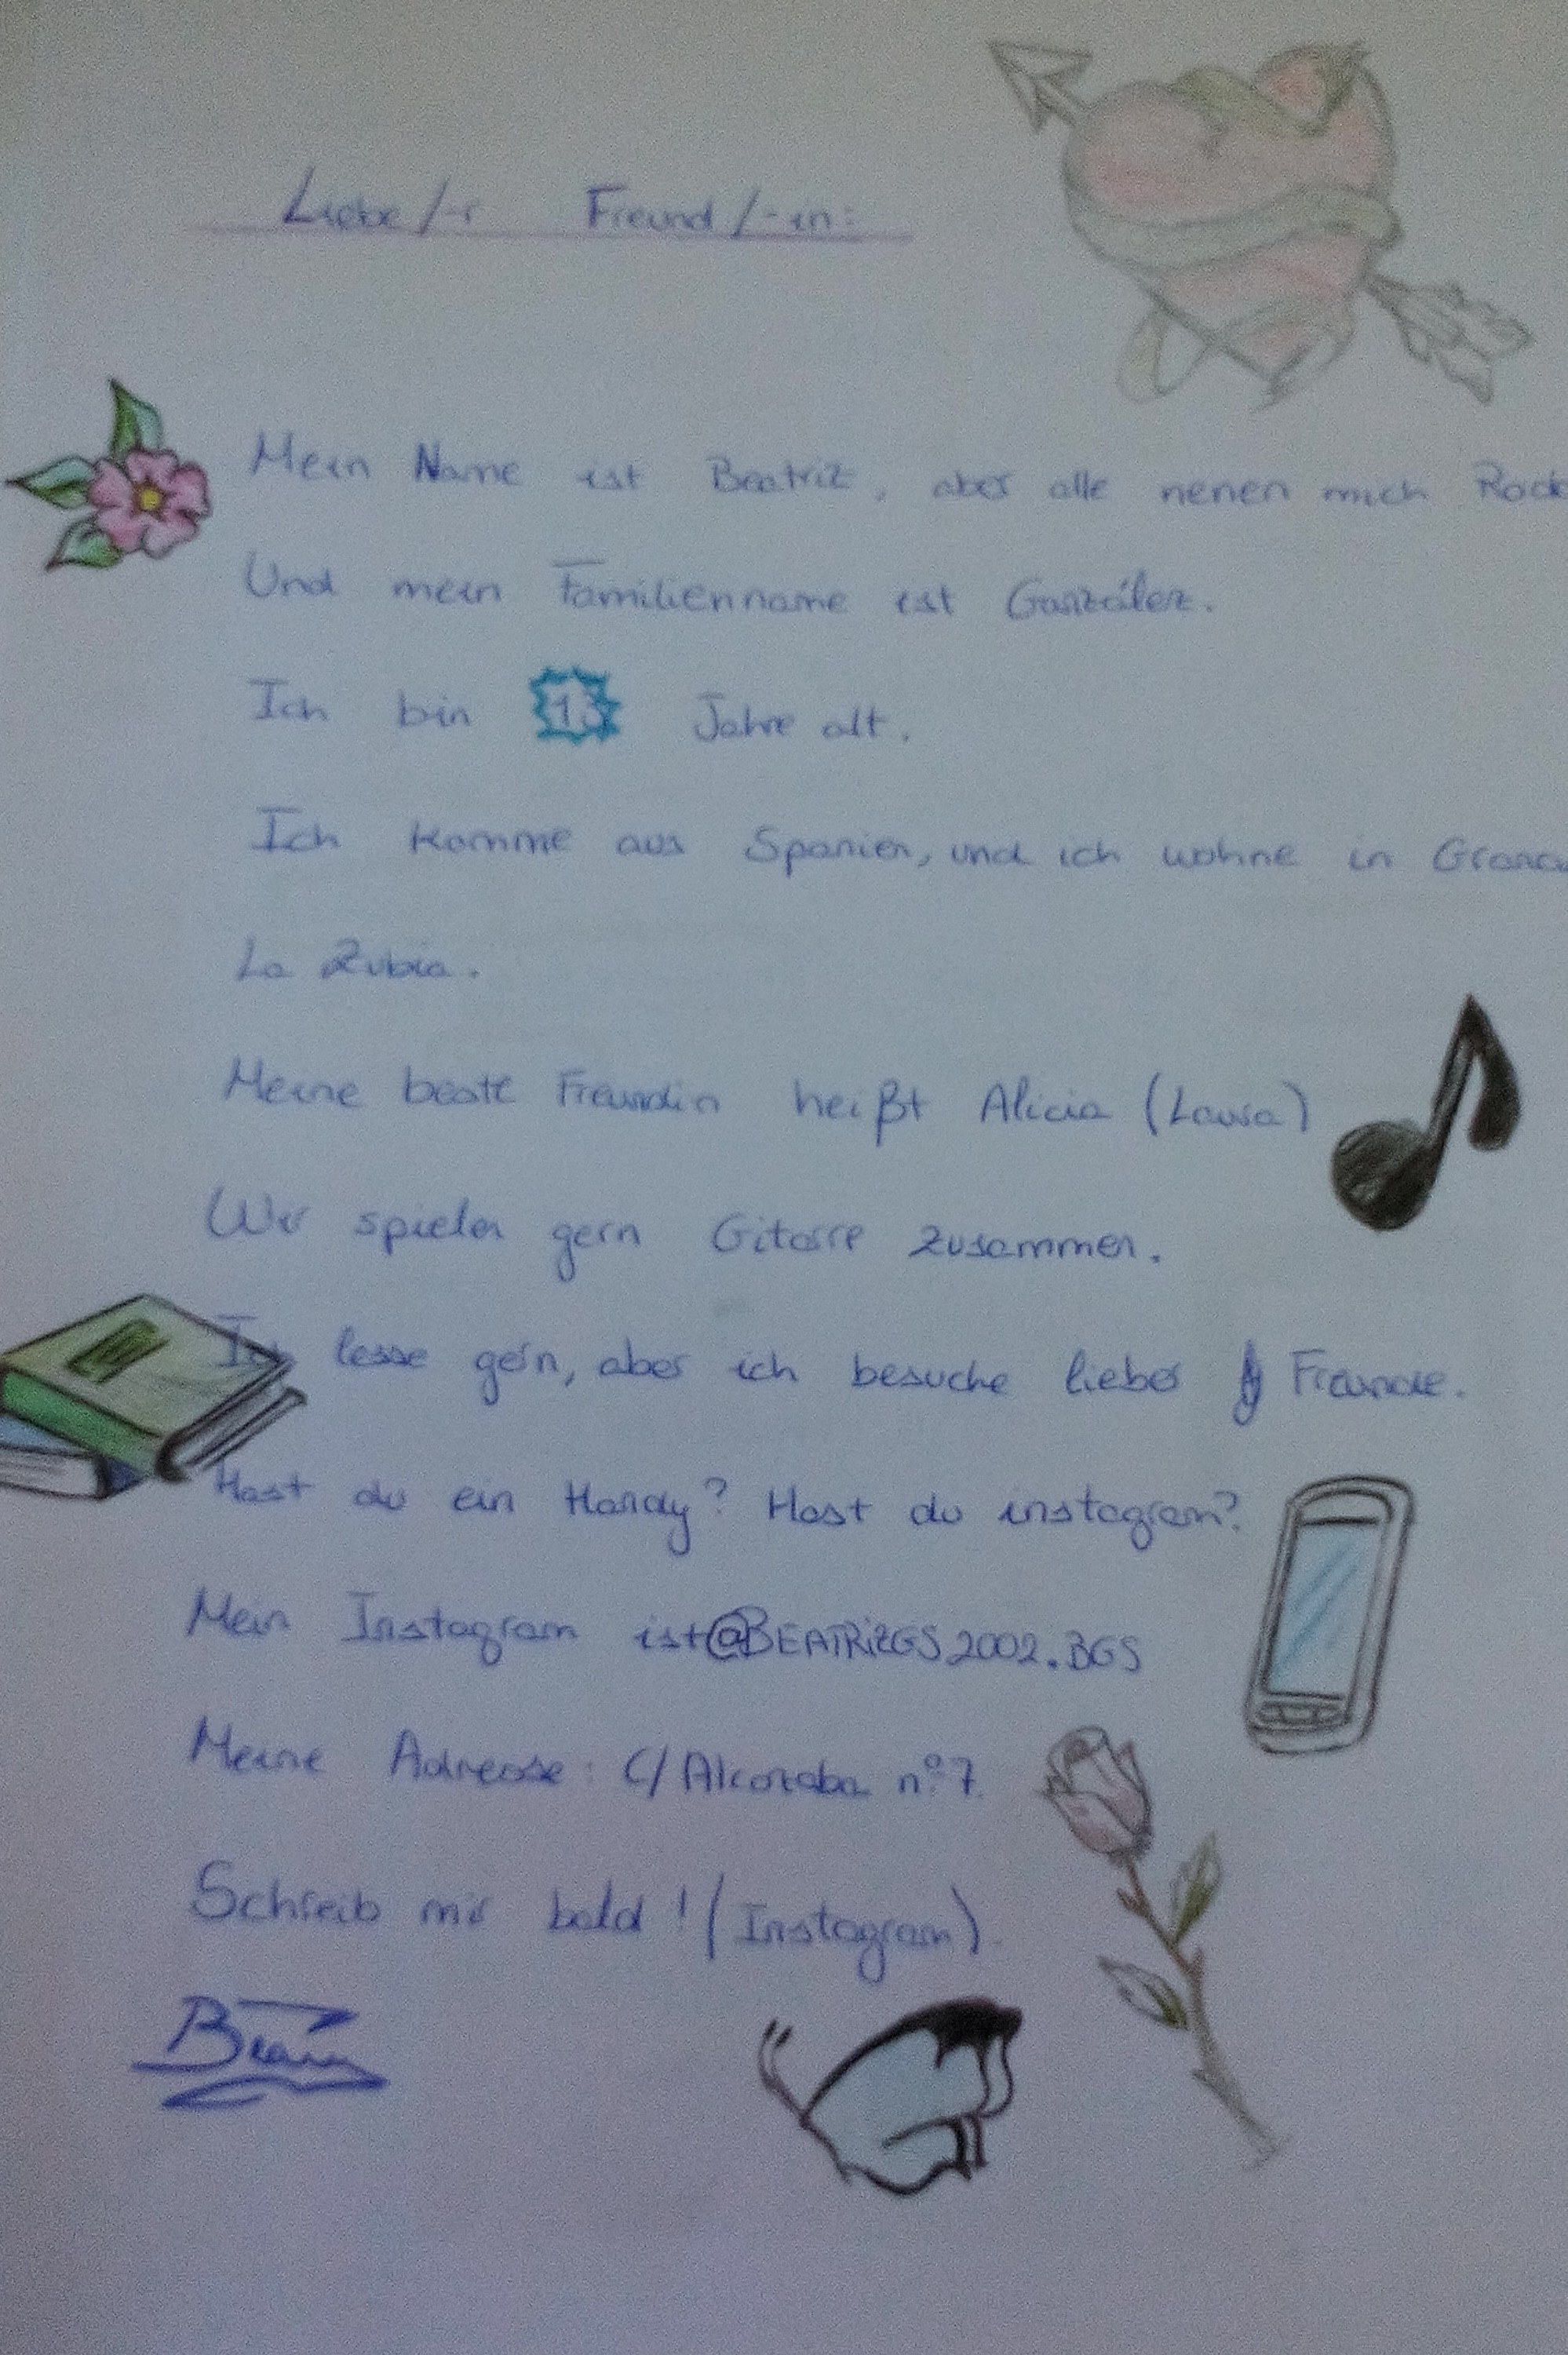 Liebe/-r Freund/-in:
Mein Name ist Beatriz, aber alle nenen mich Rock
Und mein Familienname ist González.
Ich bin 13 Jahre alt.
Ich komme aus Spanien, und ich wohne in Grana
La Zubia.
Meine beste Freundin heißt Alicia (Lausa)
Wir spielen gern Gitarre zusammen.
Ich lesse gern, aber ich besuche lieber Freunde.
Hast du ein Handy? Hast du instagram?
Mein Instagram ist @BEATRiZGS2002.BGS
Meine Adresse: C/Alcazaba nº7.
Schreib mir bald! (Instagram).